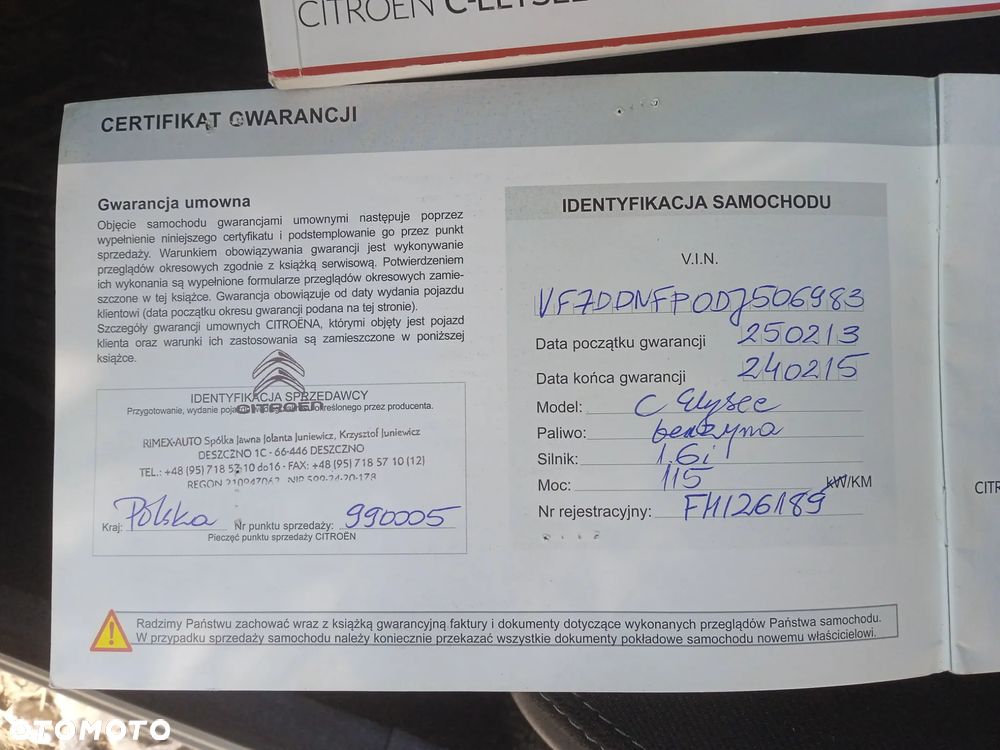 CITROËN C-ELYSÉE
CERTIFIKAT GWARANCJI
Gwarancja umowna
Objęcie samochodu gwarancjami umownymi następuje poprzez
wypełnienie niniejszego certyfikatu i podstemplowanie go przez punkt
sprzedaży. Warunkiem obowiązywania gwarancji jest wykonywanie
przeglądów okresowych zgodnie z książką serwisową. Potwierdzeniem
ich wykonania są wypełnione formularze przeglądów okresowych zamie-
szczone w tej książce. Gwarancja obowiązuje od daty wydania pojazdu
klientowi (data początku okresu gwarancji podana na tej stronie).
Szczegóły gwarancji umownych CITROËNA, którymi objęty jest pojazd
klienta oraz warunki ich zastosowania są zamieszczone w poniższej
książce.
IDENTYFIKACJA SPRZEDAWCY
Przygotowanie, wydanie określonego przez producenta.
CITROËN
RIMEX-AUTO Spółka Jawna Jolanta Juniewicz, Krzysztof Juniewicz
DESZCZNO 1C - 66-446 DESZCZNO
TEL.: +48 (95) 718 57 10 do16 - FAX: +48 (95) 718 57 10 (12)
REGON 210947062 NIP 599-24-20-178
Kraj: Polska Nr punktu sprzedaży: 990005
Pieczęć punktu sprzedaży CITROËN
IDENTYFIKACJA SAMOCHODU
V.I.N.
VF7DDNFP0DJ506983
Data początku gwarancji 250213
Data końca gwarancji 240215
Model: C Elysee
Paliwo: benzyna
Silnik: 1.6i
Moc: 115 kW/KM
Nr rejestracyjny: FH126189
CITR
Radzimy Państwu zachować wraz z książką gwarancyjną faktury i dokumenty dotyczące wykonanych przeglądów Państwa samochodu.
W przypadku sprzedaży samochodu należy koniecznie przekazać wszystkie dokumenty pokładowe samochodu nowemu właścicielowi.
OTOMOTO